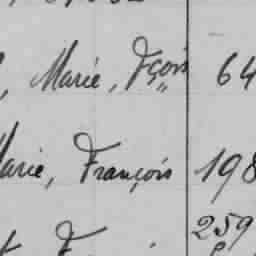 , Marie, Fçois 64
Marie, François 198
259